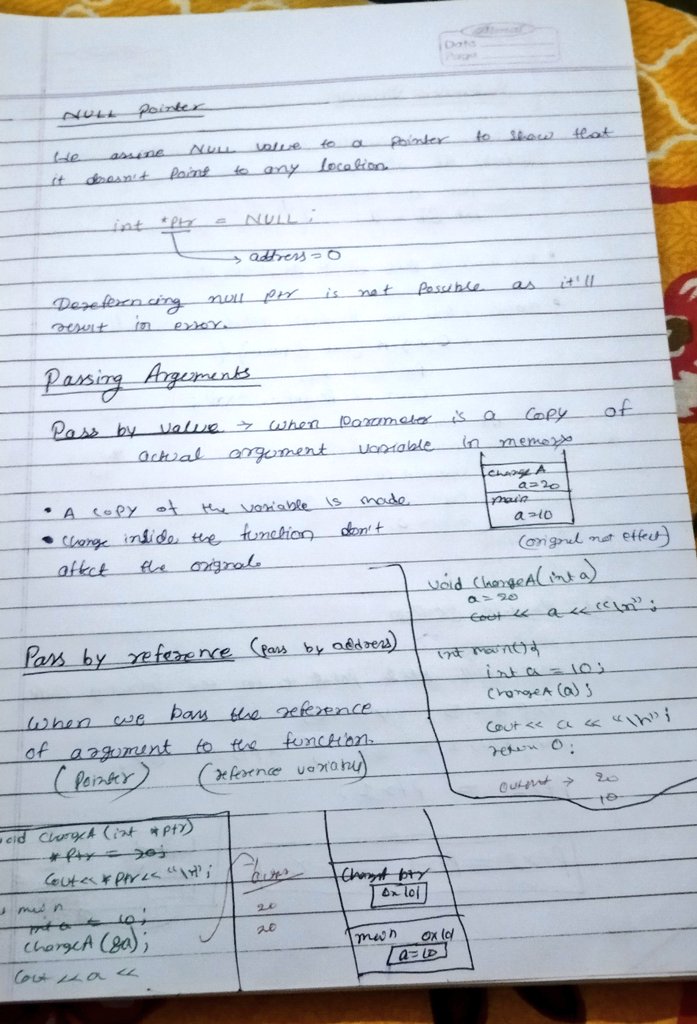 Date
Page
NULL Pointer
We assine NULL value to a pointer to show that
it doesn't point to any location
int *ptr = NULL;
address = 0
Dereferencing null ptr is not possible as it'll
result in error.
Passing Arguments
Pass by value → when parameter is a copy of
actual argument variable in memory
• A copy of the variable is made
• change inside the function don't
affect the orignal.
change A
a=20
main
a=10
(orignal not effect)
void changeA(int a)
a = 20
cout << a << "\n";
int main(){
int a = 10;
changeA(a);
cout << a << "\n";
return 0;
output → 20
10
Pass by reference (pass by address)
when we pass the reference
of argument to the function.
(pointer) (reference variable)
void changeA (int *ptr)
*ptr = 20;
cout << *ptr << "\n";
main
int a = 10;
changeA (&a);
cout << a <<
20
20
changeA ptr
0x101
main 0x101
a=10